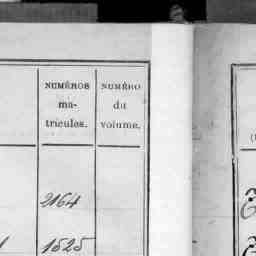 NUMÉROS
ma-
tricules.
NUMÉRO
du
volume.
2164
1525